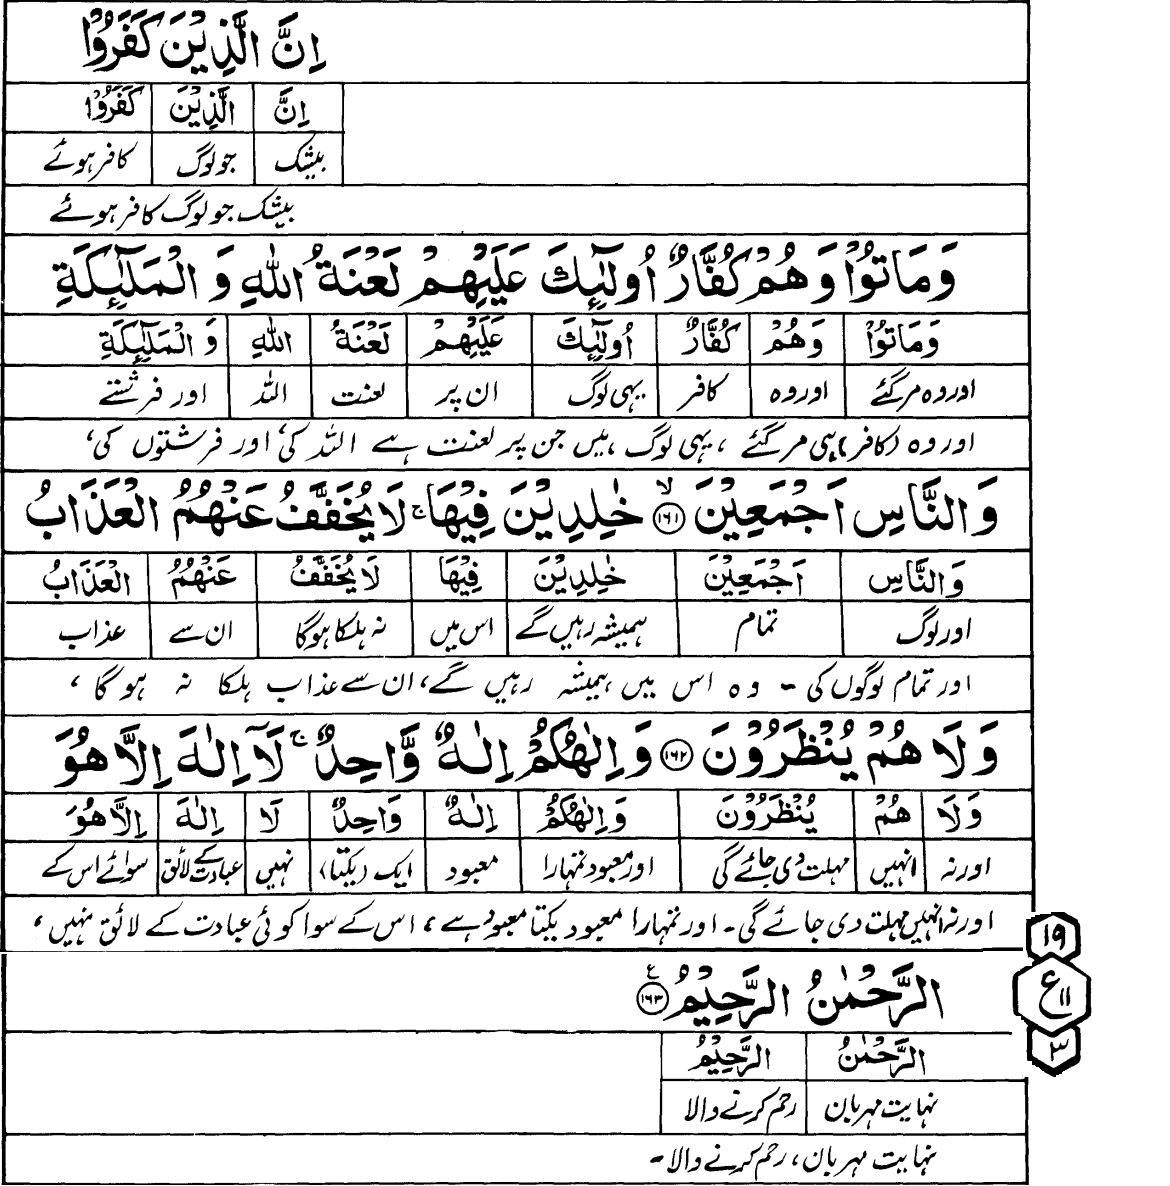 اِنَّ الَّذِيْنَ كَفَرُوْا
اِنَّ الَّذِيْنَ كَفَرُوْا
بیشک جو لوگ کافر ہوئے
بیشک جو لوگ کافر ہوئے
وَمَاتُوْا وَهُمْ كُفَّارٌ اُولٰٓئِكَ عَلَيْهِمْ لَعْنَةُ اللّٰهِ وَ الْمَلٰٓئِكَةِ
وَمَاتُوْا وَهُمْ كُفَّارٌ اُولٰٓئِكَ عَلَيْهِمْ لَعْنَةُ اللّٰهِ وَ الْمَلٰٓئِكَةِ
اور وہ مر گئے اور وہ کافر یہی لوگ ان پر لعنت اللہ اور فرشتے
اور وہ (کافر) ہی مر گئے ، یہی لوگ ہیں جن پر لعنت ہے اللہ کی، اور فرشتوں کی،
وَالنَّاسِ اَجْمَعِيْنَ ۙ﴿۱۶۱﴾ خٰلِدِيْنَ فِيْهَا ۚ لَا يُخَفَّفُ عَنْهُمُ الْعَذَابُ
وَالنَّاسِ اَجْمَعِيْنَ خٰلِدِيْنَ فِيْهَا لَا يُخَفَّفُ عَنْهُمُ الْعَذَابُ
اور لوگ تمام ہمیشہ رہیں گے اس میں نہ ہلکا ہوگا ان سے عذاب
اور تمام لوگوں کی ۔ وہ اس میں ہمیشہ رہیں گے، ان سے عذاب ہلکا نہ ہو گا ،
وَلَا هُمْ يُنْظَرُوْنَ ﴿۱۶۲﴾ وَاِلٰهُكُمْ اِلٰهٌ وَّاحِدٌ ۚ لَآ اِلٰهَ اِلَّا هُوَ
وَلَا هُمْ يُنْظَرُوْنَ وَاِلٰهُكُمْ اِلٰهٌ وَاحِدٌ لَا اِلٰهَ اِلَّا هُوَ
اور نہ انہیں مہلت دی جائے گی اور معبود تمہارا معبود ایک (یکتا) نہیں عبادت کے لائق سوائے اس کے
اور نہ انہیں مہلت دی جائے گی ۔ اور تمہارا معبود یکتا معبود ہے، اس کے سوا کوئی عبادت کے لائق نہیں،
۱۹
ع ۱۱
۳
الرَّحْمٰنُ الرَّحِيْمُ ﴿۱۶۳﴾ ع
الرَّحْمٰنُ الرَّحِيْمُ
نہایت مہربان رحم کرنے والا
نہایت مہربان، رحم کرنے والا ۔